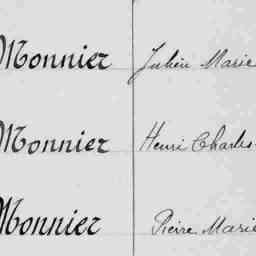 Monnier Julien Marie
Monnier Henri Charles
Monnier Pierre Marie